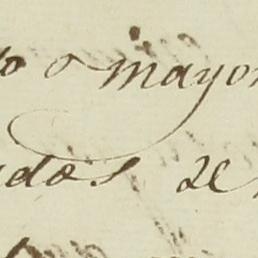 to o mayor
ados de